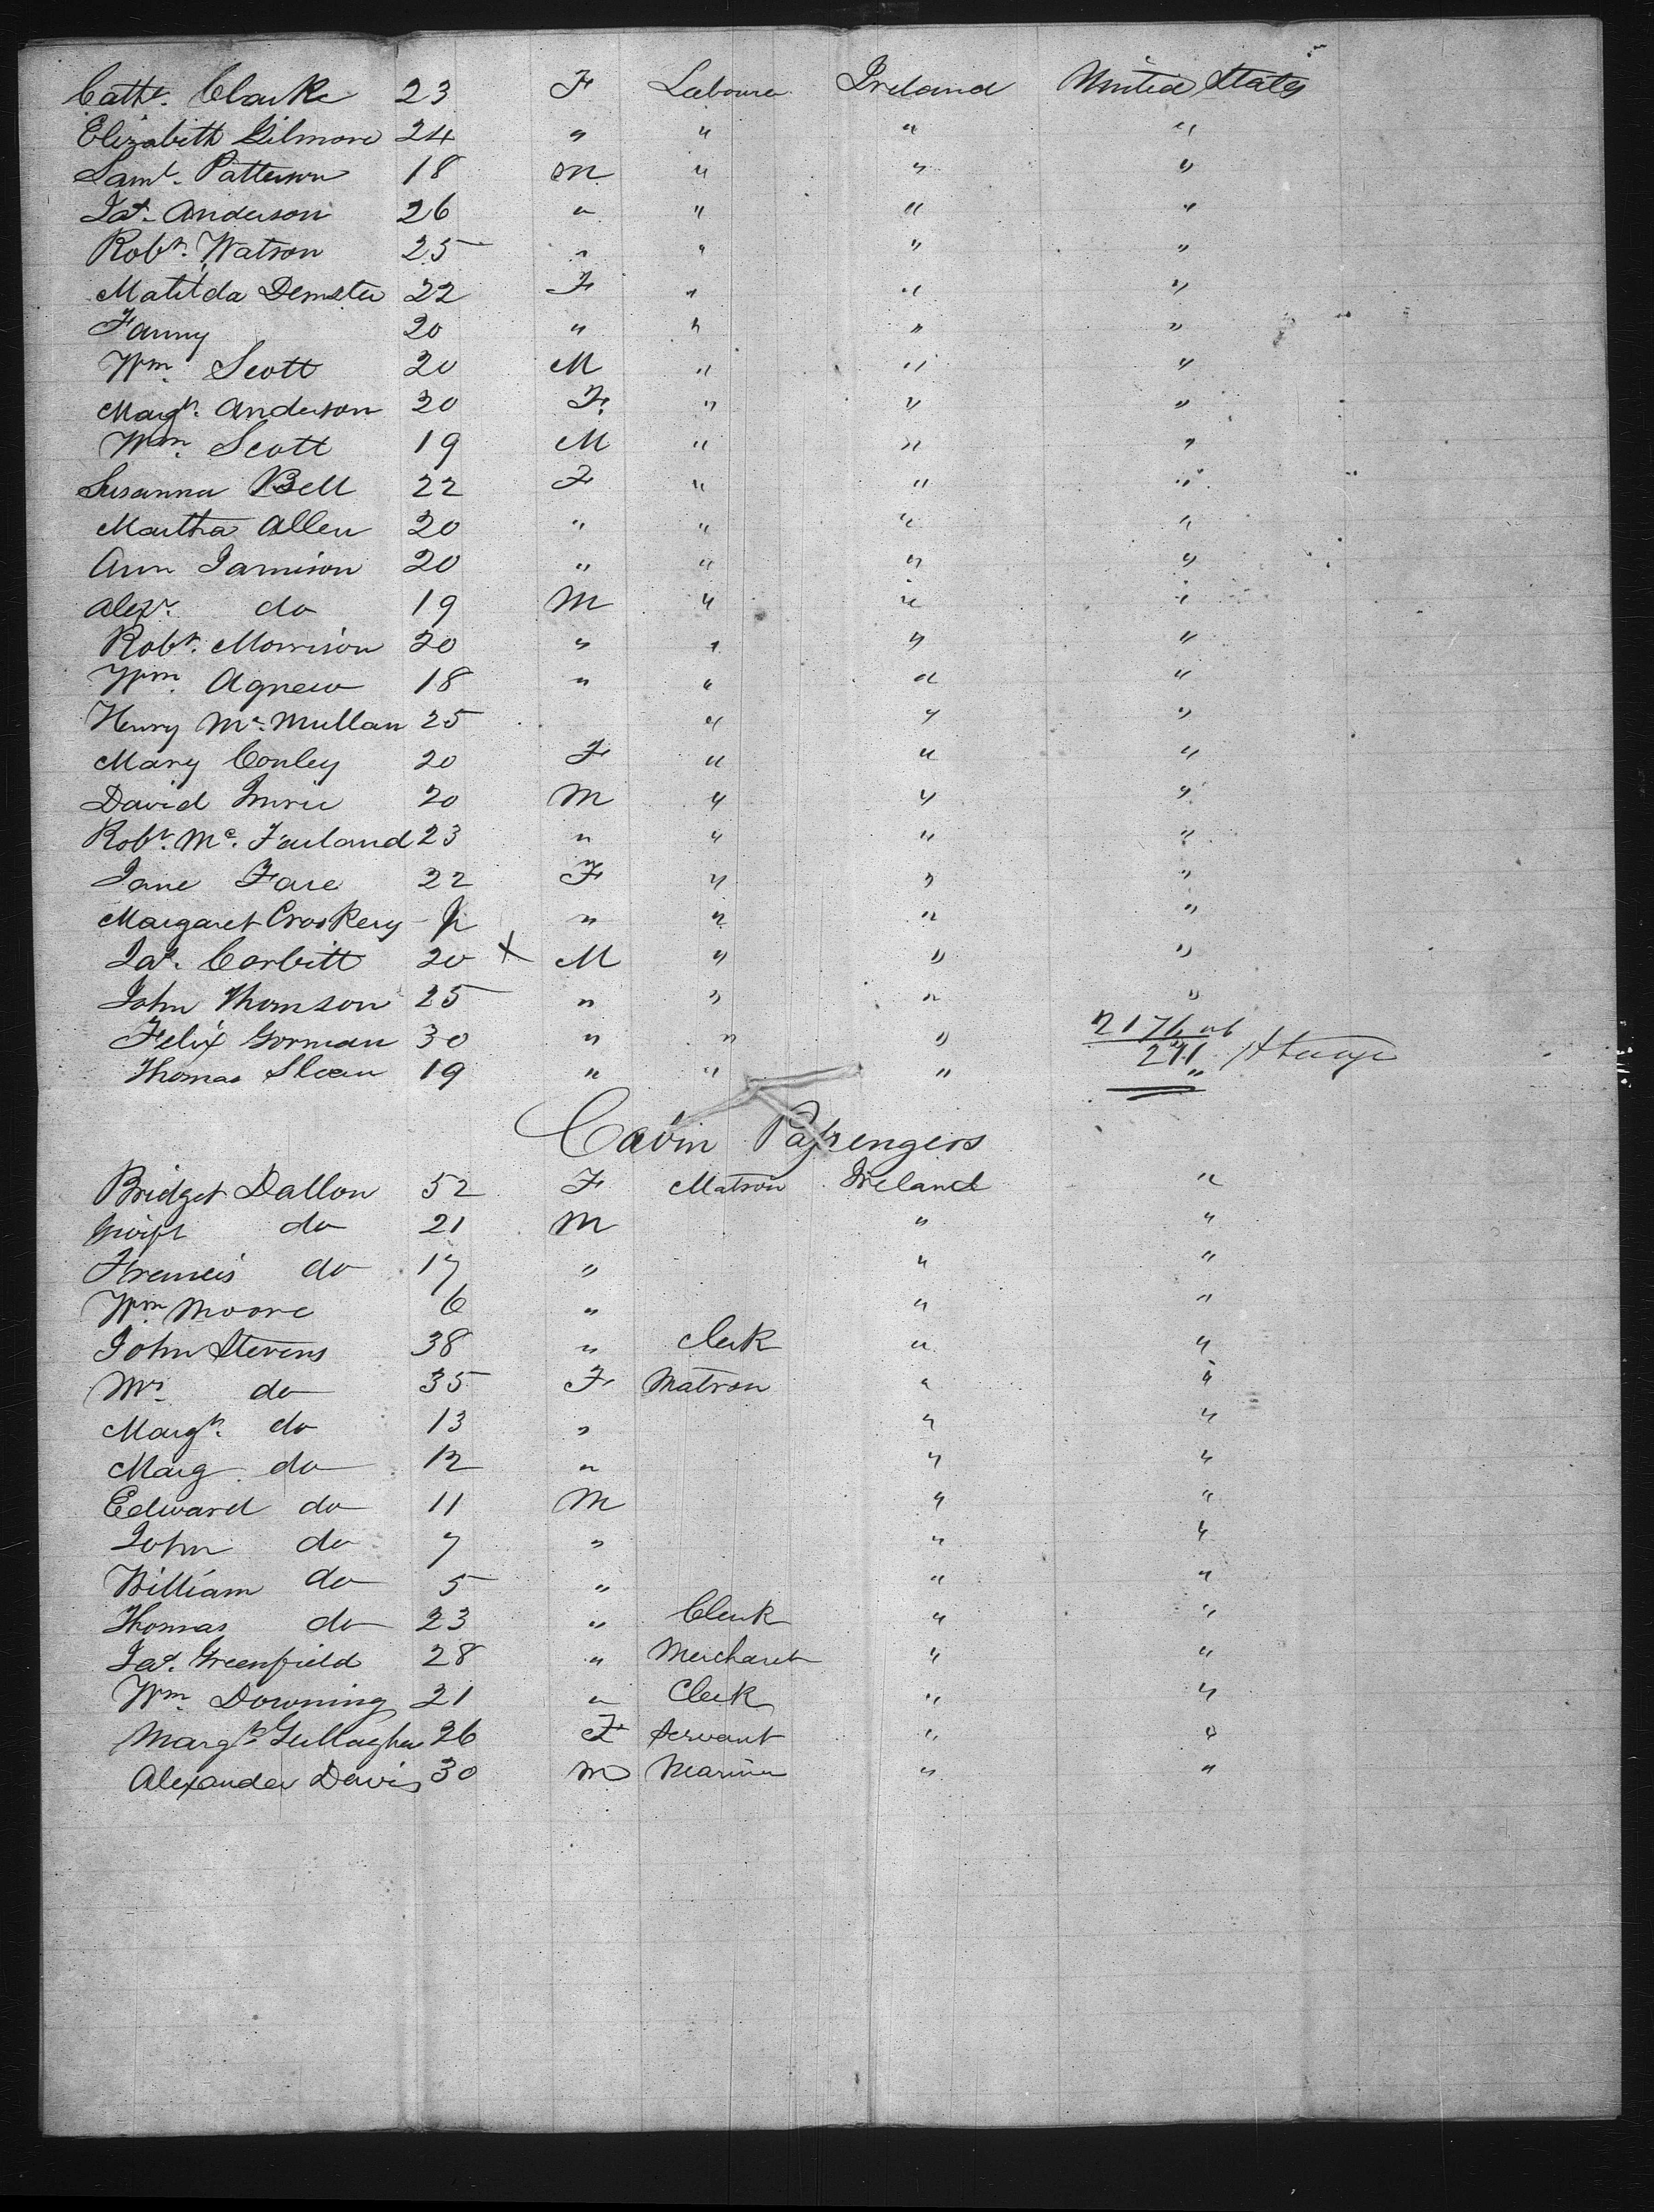 Cathe. Clarke 23 F Labourer Ireland United States
Elizabeth Gilmore 24 " " " "
Saml. Patterson 18 M " " "
Jas. Anderson 26 " " " "
Robt. Watson 25 " " " "
Matilda Demster 22 F " " "
Fanny 20 " " " "
Wm. Scott 20 M " " "
Margt. Anderson 20 F " " "
Wm. Scott 19 M " " "
Susanna Bell 22 F " " "
Martha Allen 20 " " " "
Ann Jamison 20 " " " "
Alexr. do 19 M " " "
Robt. Morrison 20 " " " "
Wm. Agnew 18 " " " "
Henry Mc. Mullan 25 " " "
Mary Conley 20 F " " "
David Imrie 20 M " " "
Robt. Mc. Farland 23 " " " "
Jane Fare 22 F " " "
Margaret Croskery " " " "
Jas. Corbitt 20 X M " " "
John Thomson 25 " " " "
Felix Gorman 30 " " "
Thomas Sloan 19 " " " "
271
Cabin Passengers
Bridget Dallon 52 F Matron Ireland "
do 21 M " "
Francis do 17 " " "
Wm. Moore 6 " " "
John Stevens 38 " Clerk " "
Mrs. do 35 F Matron " "
Margt. do 13 " " "
Marg do 12 " " "
Edward do 11 M " "
John do 7 " " "
William do 5 " " "
Thomas do 23 " Clerk " "
Jas. Greenfield 28 " Merchant " "
Wm. Downing 21 " Clerk " "
Margt. Gullagher 26 F Servant " "
Alexander Davis 30 M Mariner " "